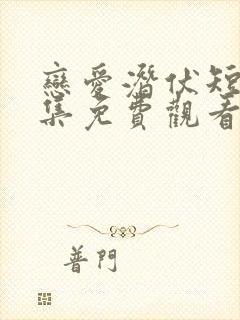 戀愛潛伏短
集免費觀看
普門